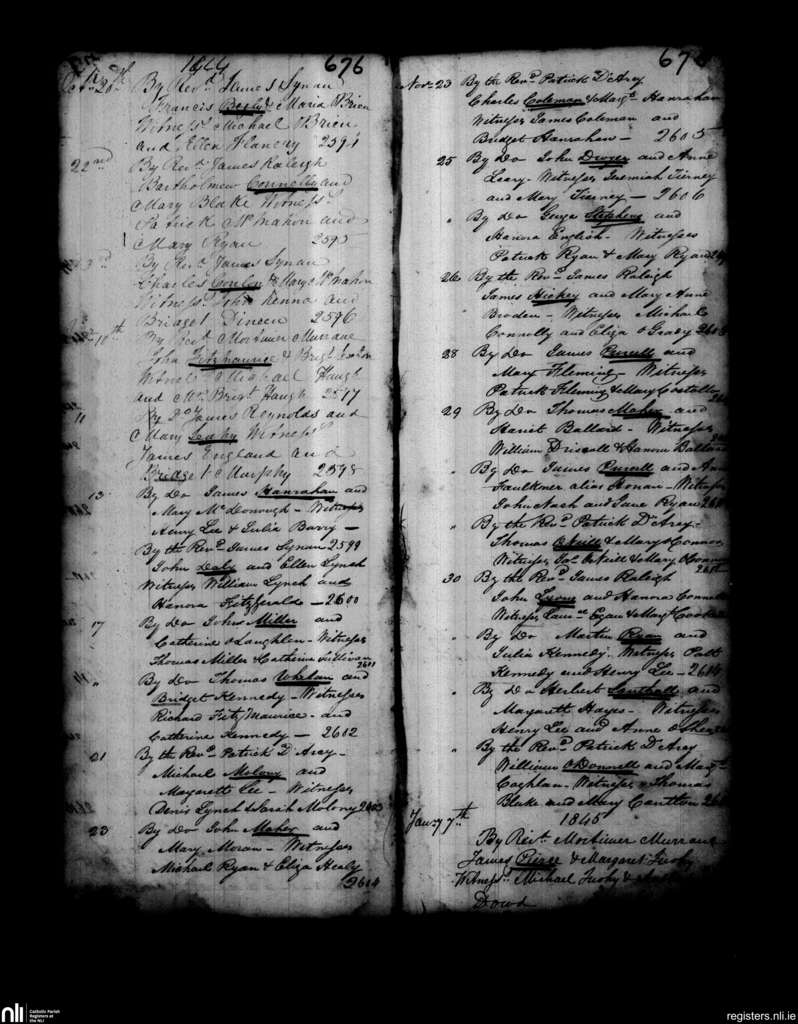 1844 676
Octr 20th By Revd James Synan
Francis Begley & Maria O'Brien
Witness Michael O'Brien
and Ellen Clancy 2594
22nd By Revd James Raleigh
Bartholmew Connolly and
Mary Blake Witness
Patrick McMahon and
Mary Ryan 2595
By Revd James Synan
Charles Conlen & Mary McMahon
Witness John Kenna and
Bridget Dineen 2596
10th By Revd Mortimer Murrane
John Fitzmaurice & Brigt
Witness Michael Haugh
and Brigt Haugh 2597
11 By Do James Reynolds and
Mary Leahy Witness
James England and
Bridget Murphy 2598
13 By Do James Hanrahan and
Mary McDonough - Witness
Henry Lee & Julia Barry -
By the Revd James Synan 2599
John Daly and Ellen Lynch
Witness William Lynch and
Hanora Fitzgerald - 2600
17 By Do John Miller and
Catherine O'Laughlen - Witness
Thomas Miller & Catherine Sullivan
2601
" By Do Thomas Whelan and
Bridget Kennedy - Witnesses
Richard FitzMaurice - and
Catherine Kennedy - 2602
21 By the Revd Patrick D'Arcy -
Michael Molony and
Margarett Lee - Witness
Denis Lynch & Sarah Molony 2603
23 By Do John Maher and
Mary Moran - Witnesses
Michael Ryan & Eliza Healy
2604
67
Novr 23 By the Revd Patrick D'Arcy
Charles Coleman & Margt Hanrahan
Witness James Coleman and
Bridget Hanrahan - 2605
25 By Do John Dwyer and Anne
Leary - Witness Jeremiah Tierney
and Mary Tierney - 2606
" By Do George Stephens and
Hanora English - Witnesses
Patrick Ryan & Mary Ryan
26 By the Revd James Raleigh
James Hickey and Mary Anne
Broden - Witness Michael
Connolly and Eliza O'Grady
28 By Do James Purcell and
Mary Fleming - Witness
Patrick Fleming & Mary Costello
29 By Do Thomas Maher and
Hariet Ballard - Witness
William Driscoll & Hanora Ballard
" By Do James Purcell and
Faulkner alias Honan - Witness
John Nash and Jane Ryan
" By the Revd Patrick D'Arcy -
Thomas O'Neill & Mary O'Connor
Witness Jos O'Neill & Mary O'Connor
30 By the Revd James Raleigh
John Lyons and Hanora
Witness Egan & Margt
" By Do Martin Ryan and
Julia Kennedy - Witness Patt
Kennedy and Henry Lee - 2614
" By Do Herbert and
Margarett Hayes - Witness
Henry Lee and Anne O'Shea
" By the Revd Patrick D'Arcy
William O'Donnell and
Coghlan - Witness Thomas
Blake and Mary Cantlon
1845
Jany 7th
By Revd Mortimer Murrane
James Pierse & Margaret
Witness Michael &
Dowd
nli Catholic Parish
Registers at
the NLI
registers.nli.ie